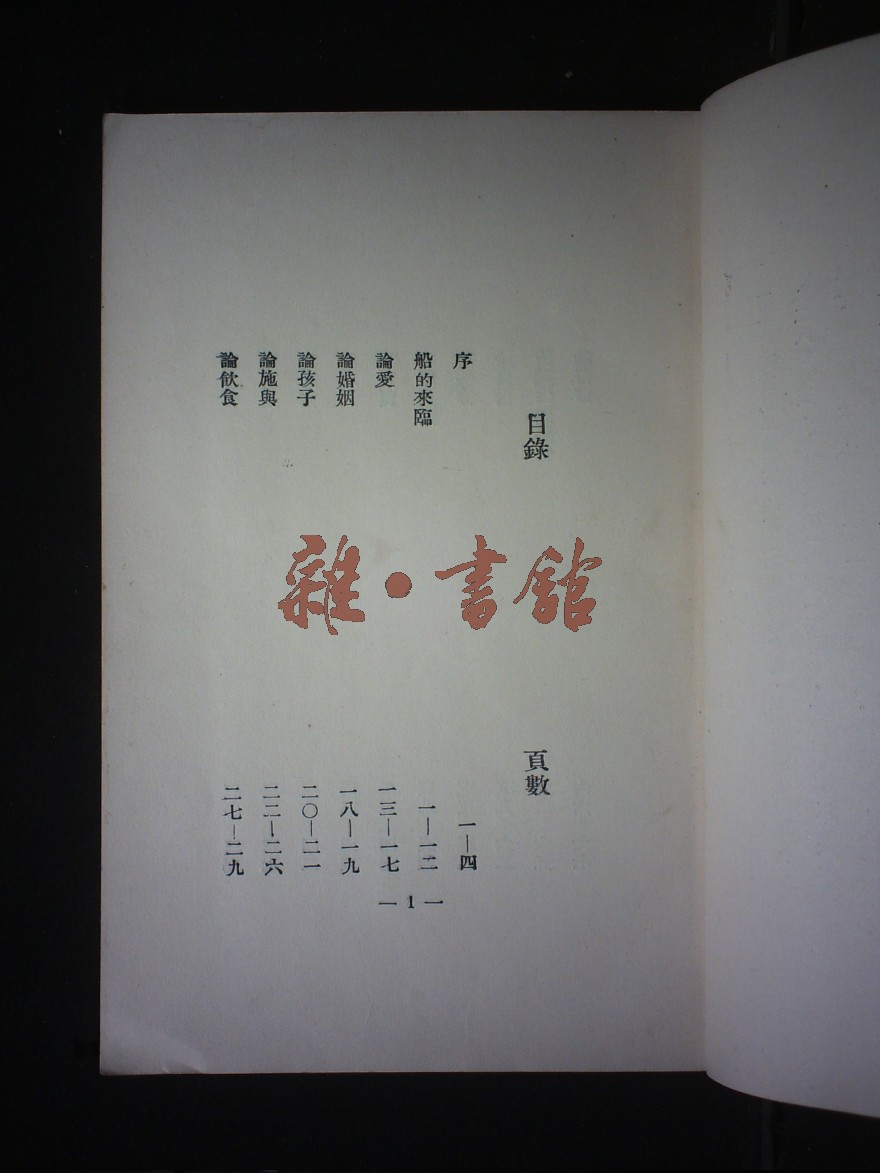 目錄 頁數
序 一—四
船的來臨 一—一二
論愛 一三—一七
論婚姻 一八—一九
論孩子 二〇—二一
論施與 二二—二六
論飲食 二七—二九
— 1 —
雜·書館